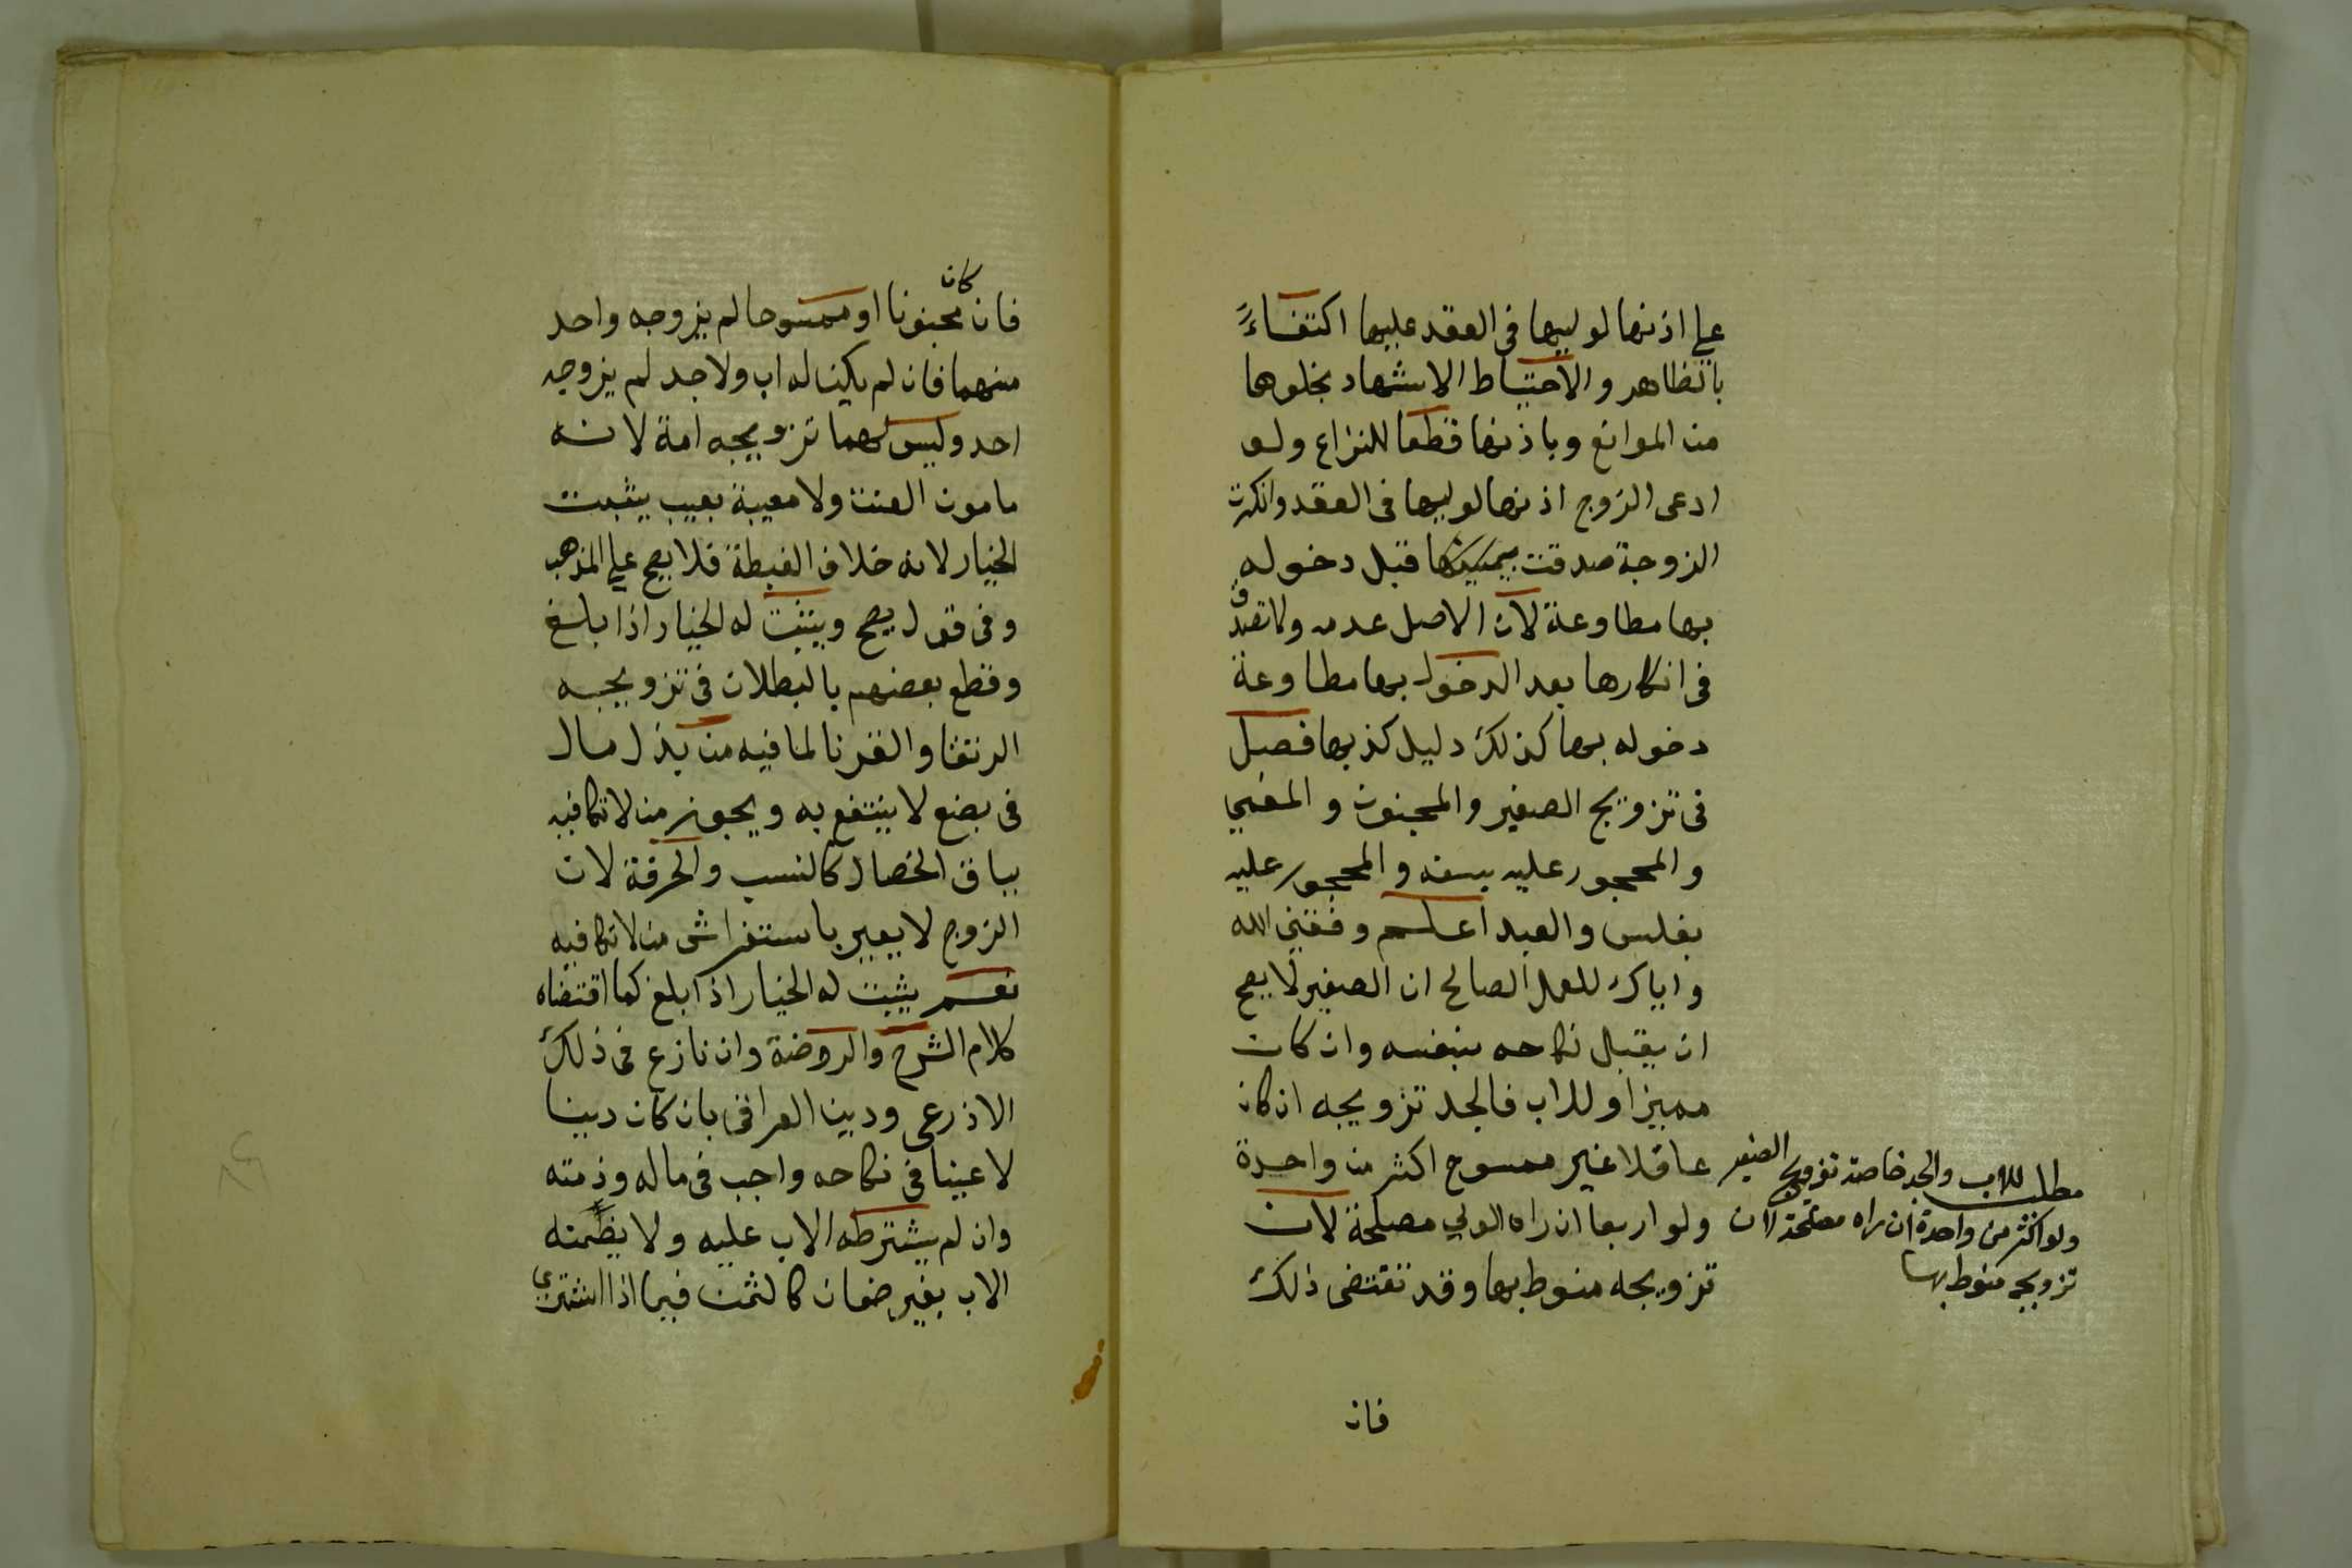 علي اذنها لوليها في العقد عليها اكتفاءً
بالظاهر والاحتياط الاشهاد بخلوها
من الموانع وباذنها قطعا للنزاع ولو
ادعى الزوج اذنها لوليها في العقد وانكرت
الزوجة صدقت بيمينها قبل دخوله
بها مطاوعة لان الاصل عدمه ولا تصدق
في انكارها بعد الدخول بها مطاوعة
دخوله بها كذلك دليل كذبها فصل
في تزويج الصغير والمجنون والمغمي
والمحجور عليه بسفه والمحجور عليه
بفلس والعبد اعلم وفقني الله
واياك للعمل الصالح ان الصغير لا يصح
ان يقبل نكاحه بنفسه وان كان
مميزا وللاب فالجد تزويجه ان كان
عاقلا غير ممسوح اكثر من واحدة
ولو اربعا ان راه الولي مصلحة لان
تزويجه منوط بها وقد تقتضي ذلك
مطلب للاب والجد خاصة تزويج الصغير
ولو اكثر من واحدة ان راه مصلحة لان
تزويجه منوط بها
فان
كان
فان مجنونا او ممسوحا لم يزوجه واحد
منهما فان لم يكن له اب ولا جد لم يزوجه
احد وليس لهما تزويجه امة لانه
مامون العنت ولا معيبة بعيب يثبت
الخيار لانه خلاف الغبطة فلا يصح علي المذهب
وفي قول يصح ويثبت له الخيار اذا بلغ
وقطع بعضهم بالبطلان في تزويجه
الرتقا والقرنا لما فيه من بذل مال
في بضع لا ينتفع به ويجوز من لا تكافيه
بباقي الخصال كالنسب والحرفة لان
الزوج لا يعير باستفراش من لا تكافيه
نعم يثبت له الخيار اذا بلغ كما اقتضاه
كلام الشرح والروضة وان نازع في ذلك
الاذرعي ودين العراقي بان كان دينا
لا عينا في نكاحه واجب في ماله وذمته
وان لم يشترطه الاب عليه ولا يضمنه
الاب بغير ضمان كالثمن فيما اذا اشتري